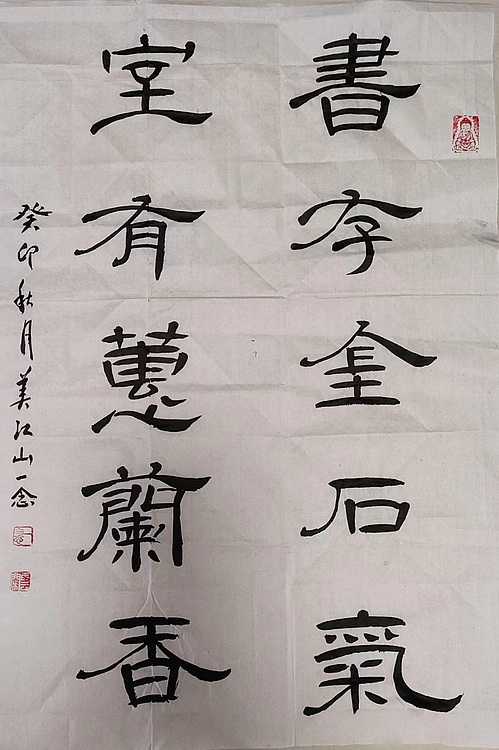 書存金石氣
室有蕙蘭香
癸卯秋月美江山一念